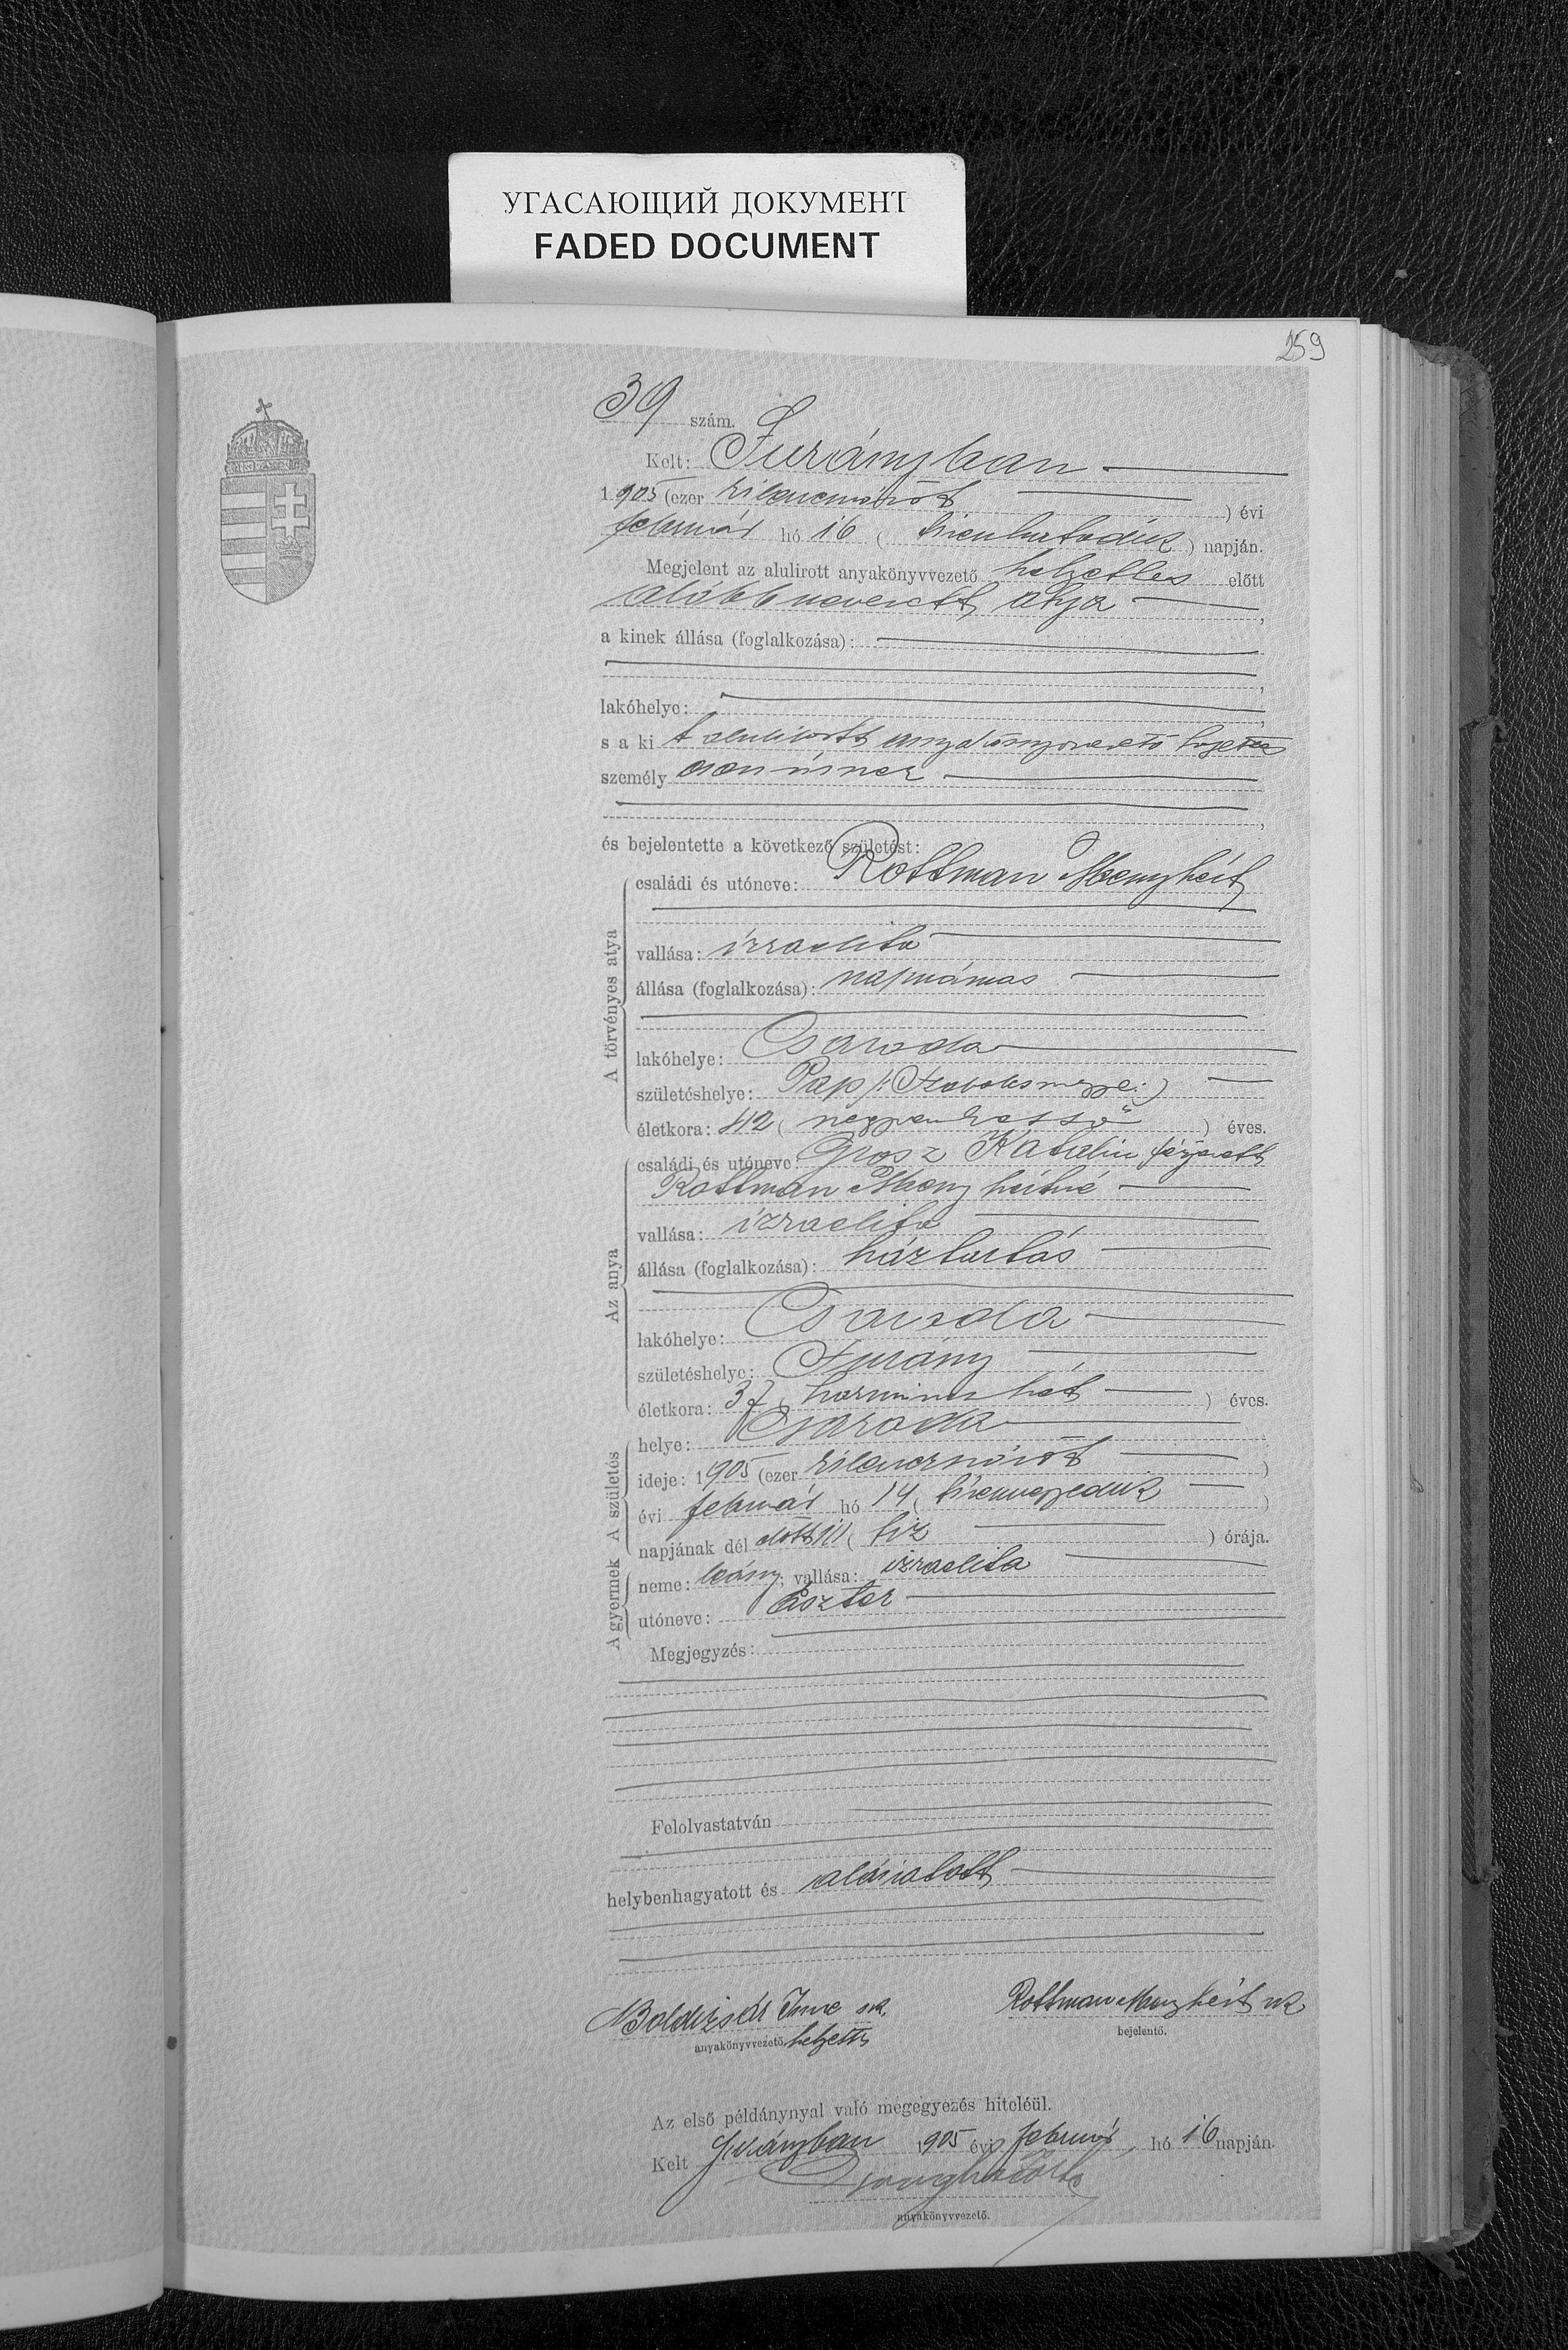 УГАСАЮЩИЙ ДОКУМЕНТ
FADED DOCUMENT
259
39 szám.
Kelt: Surányban
1905 (ezer kilenczszázöt ) évi
február hó 16 ( tizenhatodik ) napján.
Megjelent az alulirott anyakönyvvezető helyettes előtt
alább nevezett atya ,
a kinek állása (foglalkozása):
,
lakóhelye: ,
s a ki t alulirott anyakönyvvezető helyettes
személy
,
és bejelentette a következő születést:
A törvényes atya
családi és utóneve: Rottman Menyhért
vallása: izraelita
állása (foglalkozása): napszámos
lakóhelye: Csaroda
születéshelye: Pap /: Szabolcsmegye :)
életkora: 42 ( negyvenkettő ) éves.
Az anya
családi és utóneve: Grosz Katalin férjezett
Rottman Menyhértné
vallása: izraelita
állása (foglalkozása): háztartás
lakóhelye: Csaroda
születéshelye: Surány
életkora: 37 ( harminczhét ) éves.
A születés
helye: Csaroda
ideje: 1905 (ezer kilenczszázöt )
évi február hó 14 ( tizennegyedik )
napjának dél előtt 10 ( tiz ) órája.
A gyermek
neme: leány; vallása: izraelita
utóneve: Eszter
Megjegyzés:
Felolvastatván
helybenhagyatott és aláiratott
Boldizsár Imre sk. Rottman Menyhért sk
anyakönyvvezető. helyettes bejelentő.
Az első példánynyal való megegyezés hiteléül.
Kelt Surányban 1905 évi február hó 16 napján.
anyakönyvvezető.